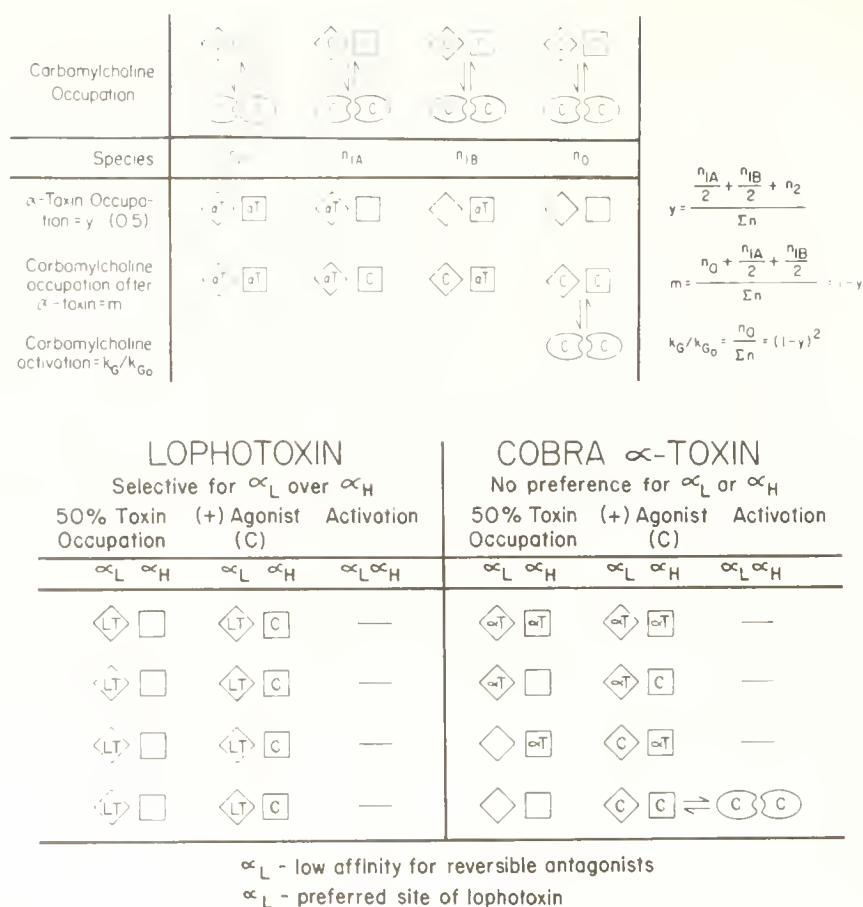 C C C
C C C
C C C
Carbomylcholine
Occupation
C C C C C C
Species n1A n1B n0
α-Toxin Occupa-
tion = y (0.5)
αT αT αT αT
Carbomylcholine
occupation after
α-toxin = m
αT αT αT C C αT C C
Carbomylcholine
activation = kG/kG0
C C
y = (n1A/2 + n1B/2 + n2) / Σn
m = (n0 + n1A/2 + n1B/2) / Σn = 1-y
kG/kG0 = n0/Σn = (1-y)²
LOPHOTOXIN
Selective for αL over αH
50% Toxin (+) Agonist Activation
Occupation (C)
αL αH αL αH αLαH
LT LT C —
LT LT C —
LT LT C —
LT LT C —
COBRA α-TOXIN
No preference for αL or αH
50% Toxin (+) Agonist Activation
Occupation (C)
αL αH αL αH αLαH
αT αT αT αT —
αT αT C —
αT C αT —
C C ⇌ C C
αL - low affinity for reversible antagonists
αL - preferred site of lophotoxin